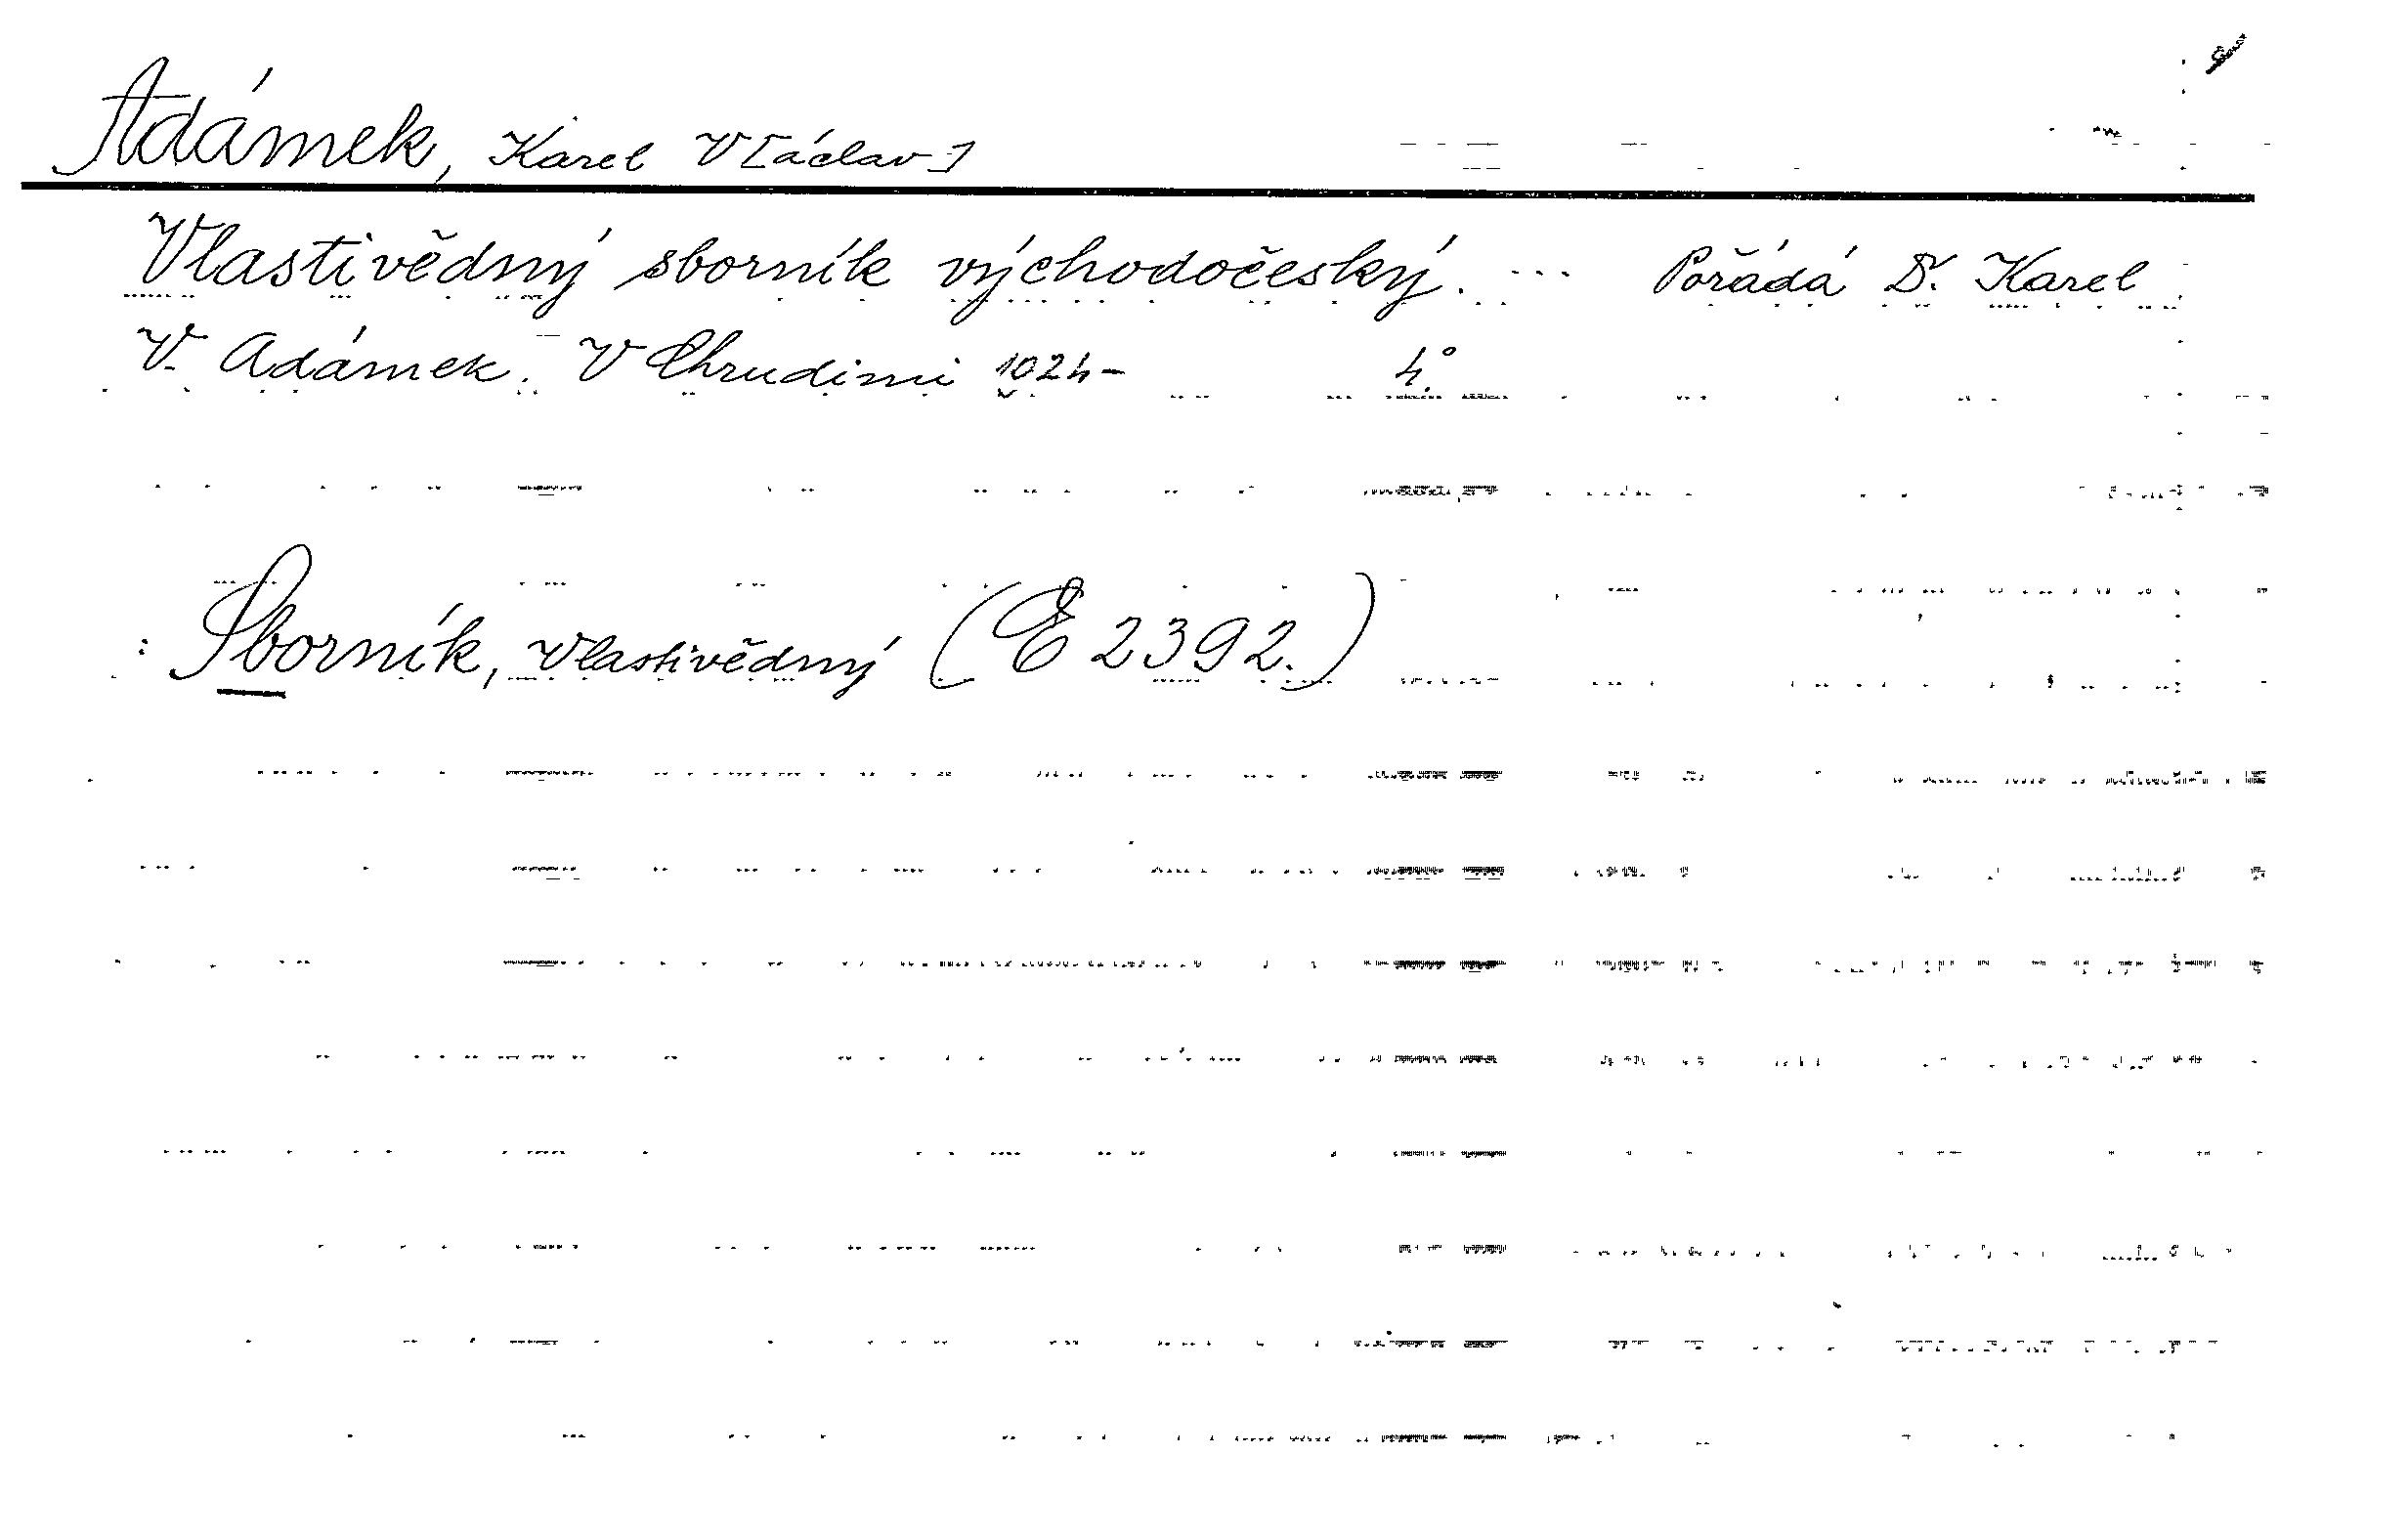 Adámek, Karel V[áclav]
Vlastivědný sborník východočeský. ... Pořádá Dr. Karel
V. Adámek. V Chrudimi 1924- 4.°
: Sborník, vlastivědný (E 2392.)